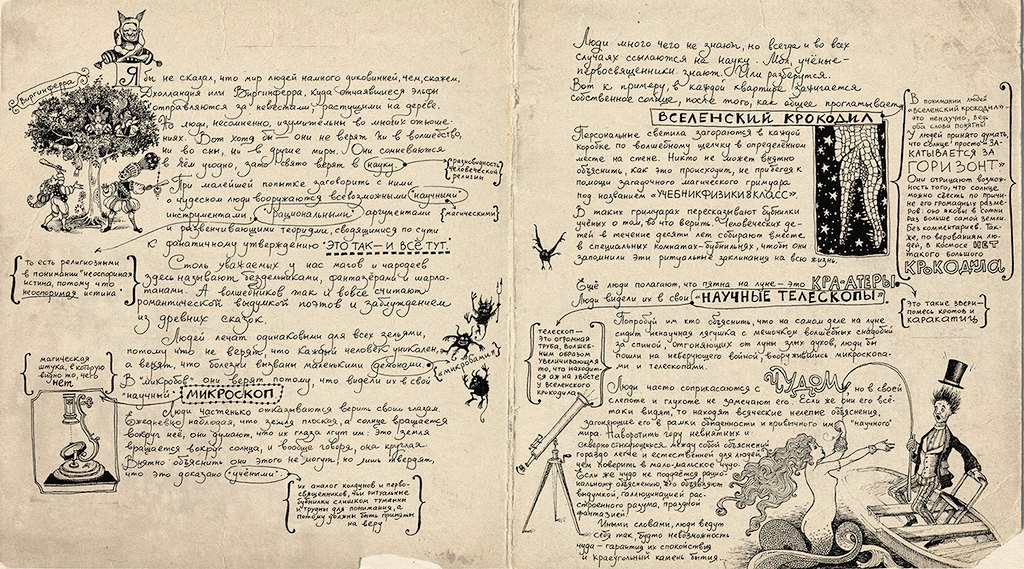 Виргинферра
Я бы не сказал, что мир людей намного диковинней, чем, скажем,
Дхолландия или Виргинферра, куда отчаявшиеся эльфы
отправляются за невестами, растущими на дереве.
Но люди, несомненно, изумительны во многих отноше-
ниях. Вот хотя бы — они не верят ни в волшебство,
ни во сны, ни в другие миры. Они сомневаются
в чём угодно, зато свято верят в науку.
разновидность
человеческой
религии
При малейшей попытке заговорить с ними
о чудесном люди вооружаются всевозможными "научными"
инструментами, "рациональными" аргументами
магическими
и развенчивающими теориями, сводящимися по сути
к фанатичному утверждению "ЭТО ТАК — И ВСЁ ТУТ."
то есть религиозными
в понимании "неоспоримая
истина, потому что
неоспоримая истина"
Столь уважаемых у нас магов и чародеев
здесь называют бездельниками, фантазёрами и шарла-
танами. А волшебников так и вовсе считают
романтической выдумкой поэтов и заблуждением
из древних сказок.
Людей лечат одинаковыми для всех зельями,
потому что не верят, что каждый человек уникален,
а верят, что болезни вызваны маленькими демонами.
"микробами"
В "микробов" они верят потому, что видели их в свой
"научный" МИКРОСКОП
магическая
штука, в которую
видно то, чего
нет
Люди частенько отказываются верить своим глазам.
Ежедневно наблюдая, что земля плоская, а солнце вращается
вокруг неё, они думают, что их глаза лгут им: это земля
вращается вокруг солнца, и вообще говоря, она круглая.
Внятно объяснить они этого не могут, но лишь твердят,
что это доказано "учёными".
их аналог колдунов и перво-
священников, чьи ритуальные
бубнилки слишком туманны
и трудны для понимания, а
потому должны быть приняты
на веру
Люди много чего не знают, но всегда и во всех
случаях ссылаются на науку. Мол, учёные-
первосвященники знают. Или разберутся.
Вот к примеру, в каждой квартире зажигается
собственное солнце, после того, как общее проглатывает
ВСЕЛЕНСКИЙ КРОКОДИЛ
В понимании людей
"вселенский крокодил" —
это ненаучно, ведь
оба слова понятны.
У людей принято думать,
что солнце просто ЗА-
КАТЫВАЕТСЯ ЗА
ГОРИЗОНТ
Они отрицают возмож-
ность того, что солнце
можно съесть по причи-
не его громадных разме-
ров: оно якобы в сотни
раз больше самой земли.
Без комментариев. Так-
же, по верованиям лю-
дей, в космосе НЕТ
такого большого
КРОКОДИЛА
Персональные светила загораются в каждой
коробке по волшебному щелчку в определённом
месте на стене. Никто не может внятно
объяснить, как это происходит, не прибегая к
помощи загадочного магического гримуара
под названием "УЧЕБНИКФИЗИКИ8КЛАСС".
В таких гримуарах пересказывают бубнилки
учёных о том, во что верить. Человеческих де-
тей в течение десяти лет собирают вместе
в специальных комнатах-бубнильнях, чтобы они
запомнили эти ритуальные заклинания на всю жизнь.
Ещё люди полагают, что пятна на луне — это КРА-АТЕРЫ.
Люди видели их в свои "НАУЧНЫЕ ТЕЛЕСКОПЫ"
это такие звери —
помесь кротов и
каракатиц
телескоп —
это огромная
труба, волшеб-
ным образом
увеличивающая
то, что находит-
ся аж на хвосте
у вселенского
крокодила
Попробуй им кто объяснить, что на самом деле на луне
сидит ненаучная лягушка с мешочком волшебных снадобий
за спиной, отгоняющих от луны злых духов, люди бы
пошли на неверующего войной, вооружившись микроскопа-
ми и телескопами.
Люди часто соприкасаются с ЧУДОМ, но в своей
слепоте и глухоте не замечают его. Если же они его всё-
таки видят, то находят всяческие нелепые объяснения,
загоняющие его в рамки обыденности и привычного им "научного"
мира. Наворотить гору невнятных и
скверно стыкующихся между собой объяснений
гораздо легче и естественней для людей,
чем поверить в мало-мальское чудо.
Если же чудо не поддаётся рацио-
нальному объяснению, его объявляют
выдумкой, галлюцинацией рас-
строенного разума, праздной
фантазией!
Иными словами, люди ведут
себя так, будто невозможность
чуда — гарантия их спокойствия
и краеугольный камень бытия...